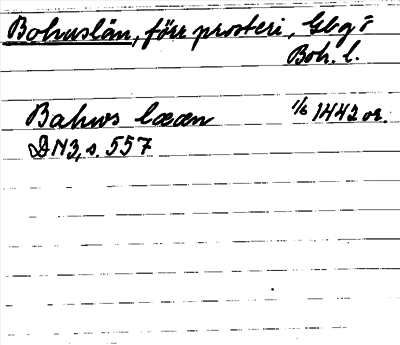 Bohuslän, förr prosteri, Gbg o
Boh. l.
Bahws lææn 1/6 1443 or.
DN 3, s. 557